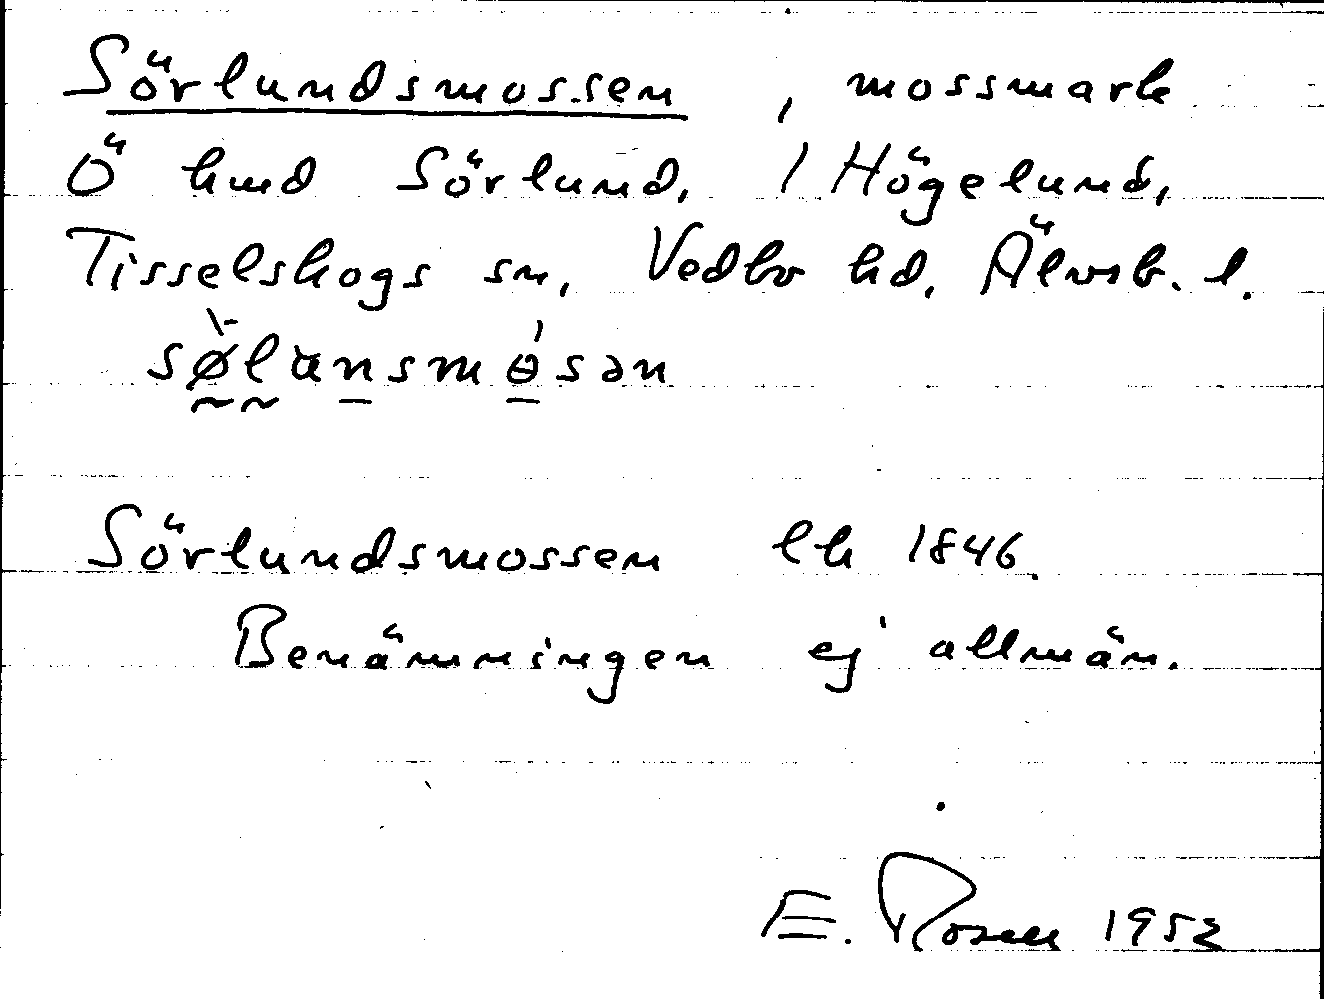 Sörlundsmossen, mossmark
Ö hmd Sörlund, 1 Högelund,
Tisselskogs sn, Vedbo hd, Älvsb. l.
sø̀lansmɵ́sən
Sörlundsmossen lk 1846.
Benämningen ej allmän.
E. Rosen 1952